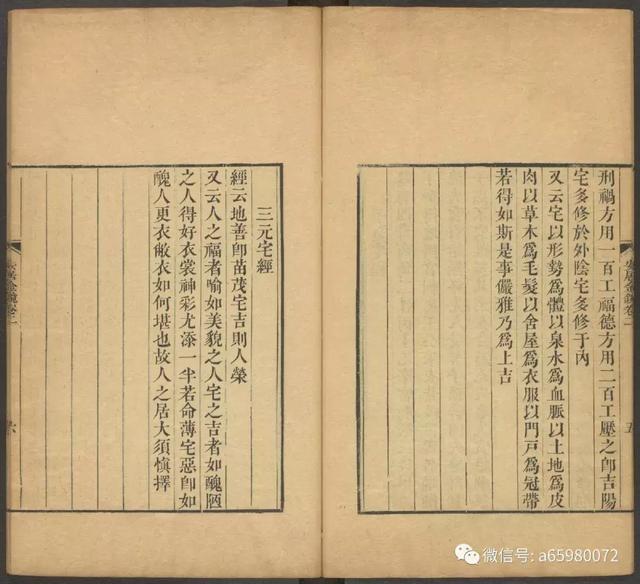 刑禍方用一百工福德方用二百工壓之卽吉陽
宅多修於外陰宅多修于內
又云宅以形勢為體以泉水為血脈以土地為皮
肉以草木為毛髮以舍屋為衣服以門戸為冠帶
若得如斯是事儼雅乃為上吉
安居金鏡卷一
五
三元宅經
經云地善卽苗茂宅吉則人榮
又云人之福者喻如美貌之人宅之吉者如醜陋
之人得好衣裳神彩尤添一半若命薄宅惡卽如
醜人更衣敝衣如何堪也故人之居大須慎擇
安居金鏡卷一
六
微信号: a65980072